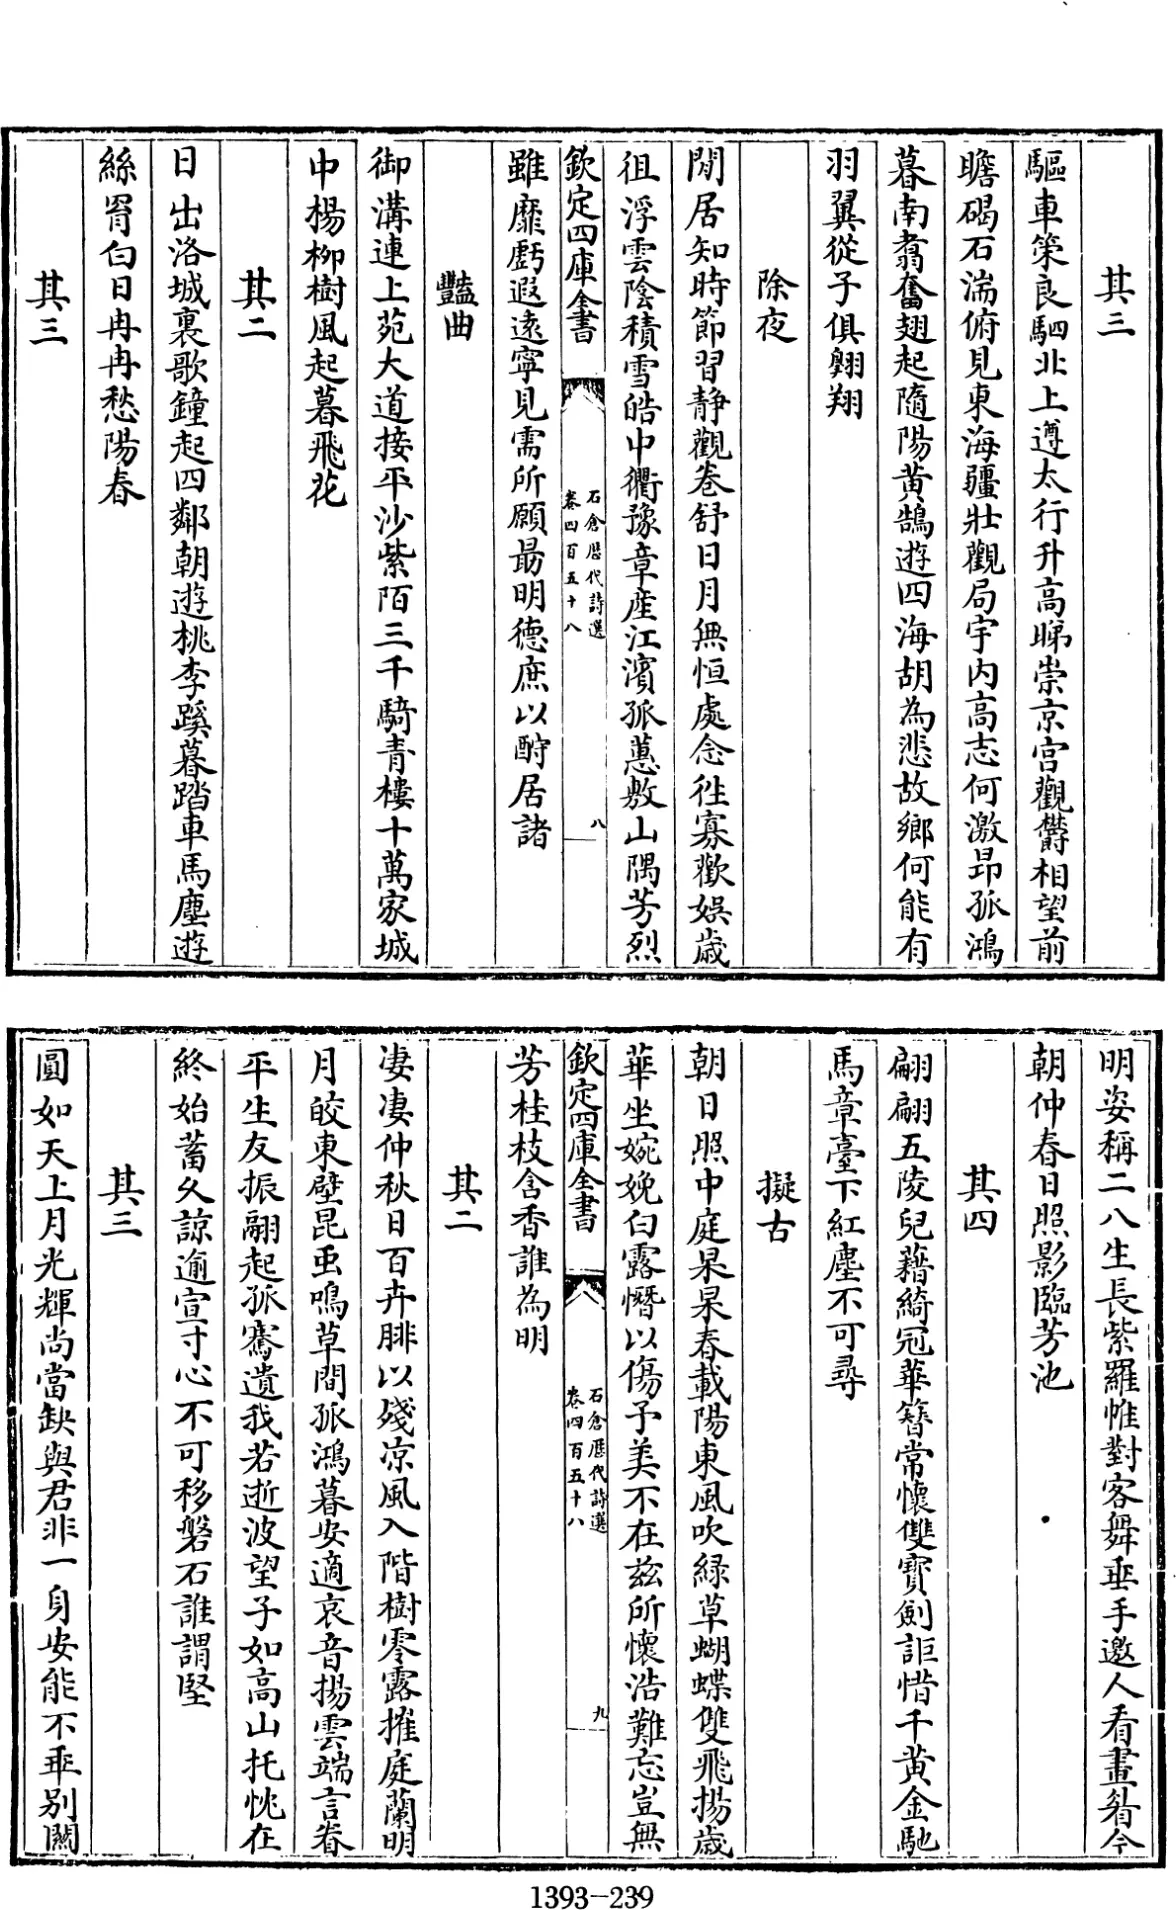 其三
驅車策良駟北上遵太行升高睇崇京宫觀欝相望前
瞻碣石湍俯見東海疆壯觀局宇内高志何激昻孤鴻
暮南翥奮翅起隨陽黄鵠遊四海胡為悲故鄉何能有
羽翼從子俱翺翔
除夜
閒居知時節習静觀卷舒日月無恒處念徃寡歡娱歳
徂浮雲陰積雪皓中衢豫章産江濱孤蕙敷山隅芳烈
欽定四庫全書
石倉歴代詩選
卷四百五十八
八
雖靡虧遐遠寧見需所願朂明德庶以酧居諸
豔曲
御溝連上苑大道接平沙紫陌三千騎青樓十萬家城
中楊柳樹風起暮飛花
其二
日出洛城裏歌鐘起四鄰朝遊桃李蹊暮踏車馬塵遊
絲罥白日冉冉愁陽春
其三
明姿稱二八生長紫羅帷對客舞垂手邀人看畫眉今
朝仲春日照影臨芳池
其四
翩翩五陵兒藉綺冠華簪常懷雙寳劍詎惜千黄金馳
馬章臺下紅塵不可尋
擬古
朝日照中庭杲杲春載陽東風吹緑草蝴蝶雙飛揚歳
華坐婉娩白露憯以傷予美不在兹所懷浩難忘豈無
欽定四庫全書
石倉歴代詩選
卷四百五十八
九
芳桂枝含香誰為明
其二
凄凄仲秋日百卉腓以殘凉風入階樹零露摧庭蘭明
月皎東壁昆䖝鳴草間孤鴻暮安適哀音揚雲端言眷
平生友振翮起孤騫遺我若逝波望子如高山托忱在
終始蓄久諒逾宣寸心不可移磐石誰謂堅
其三
圓如天上月光輝尚當缺與君非一身安能不乖别關
1393-239